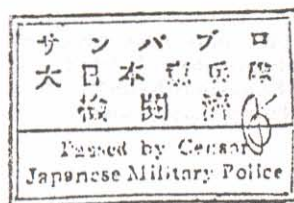 サンパブロ
大日本憲兵隊
検閲濟
Passed by Censor
Japanese Military Police